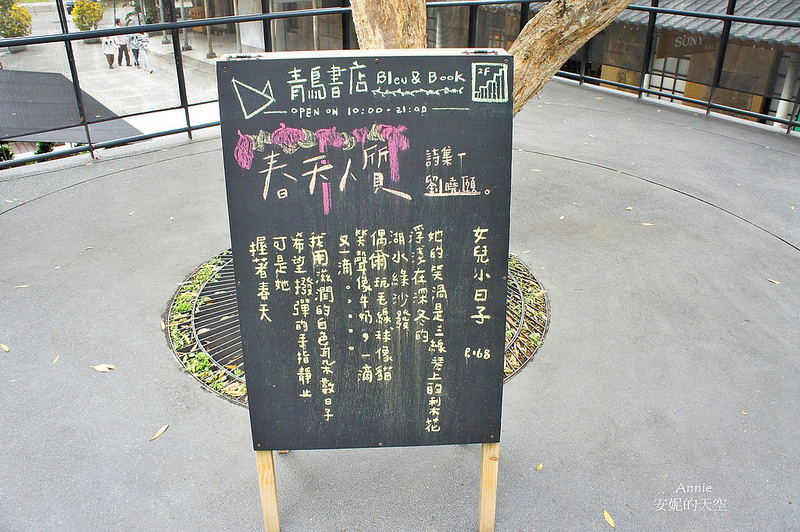 青鳥書店 Bleu & Book
2F
OPEN ON 10:00 - 21:00
春天人質
詩集
劉曉頤。
女兒小日子
P.68
她的笑渦是三線琴上的刺木花
浮淺在深冬的
湖水綠沙發
偶爾玩毛線球像貓
笑聲像牛奶，一滴
又一滴。。。。
我用滋潤的白色再次數日子
希望撥彈的手指靜止
可是她
握著春天
SUNY
Annie
安妮的天空